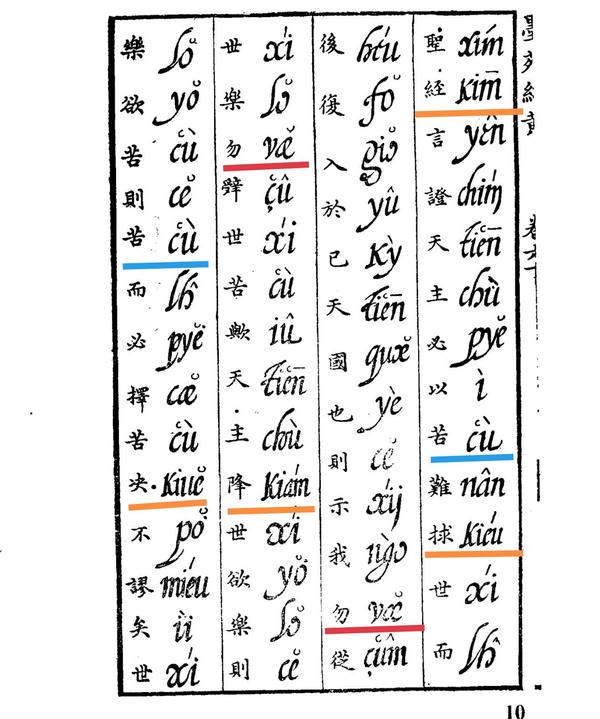 墨苑緇黃 卷六下
聖 xím̄ 経 kīm 言 yên 證 chím 天 tiēn 主 chù 必 pyĕ 以 ì 苦 cù 難 nân 捄 kiéu 世 xí 而 lĥ
後 héu 復 fŏ 入 giŏ 於 yû 已 kỳ 天 tiēn 國 quæ̆ 也 yè 則 cĕ 示 xíj 我 ngò 勿 væ̆ 從 çûm
世 xí 樂 lŏ 勿 væ̆ çû 世 xí 苦 cù 歟 iû 天 tiēn 主 chù 降 kiám 世 xí 欲 yŏ 樂 lŏ 則 cĕ
樂 lŏ 欲 yŏ 苦 cù 則 cĕ 苦 cù 而 lĥ 必 pyĕ 擇 cæ̆ 苦 cù 央 kiuĕ 不 pŏ 謬 miéu 矣 ìi 世 xí
10